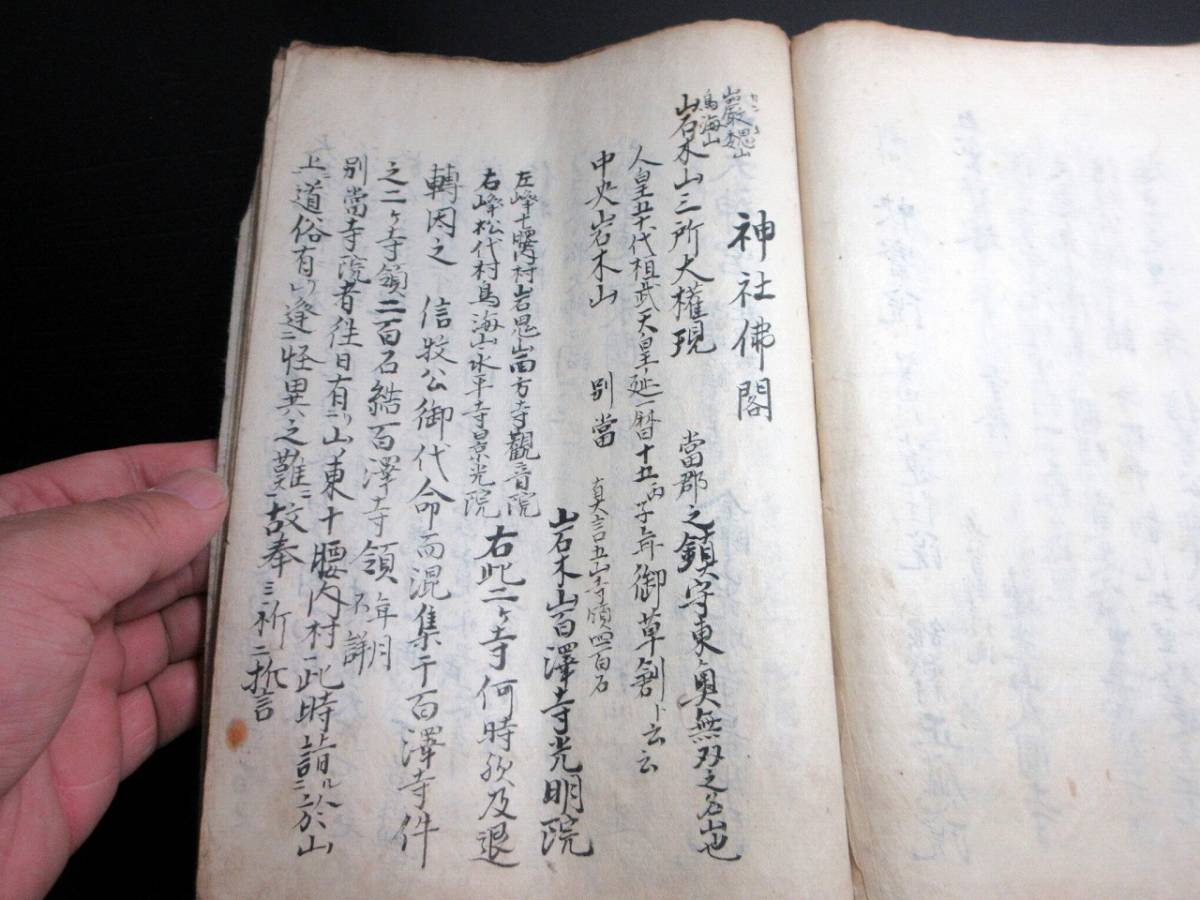 神社佛閣
巖鬼山
鳥海山
岩木山三所大權現　當郡之鎮守東奥無双之名山也
人皇五十代桓武天皇延暦十五丙子年御草創ト云云
中央岩木山　別當　真言五山寺領四百石
岩木山百澤寺光明院
左峰十腰内村岩鬼山西方寺觀音院
右峰松代村鳥海山永平寺景光院
右此二ヶ寺何時欤及退
轉因之　信牧公御代命而混集于百澤寺件
之二ヶ寺領二百石結百澤寺領年月不詳
別當寺院者往日有リ山東十腰内村此時請ルニ於山
上道俗有リ逢ニ怪異之難ニ故奉三所ニ誓